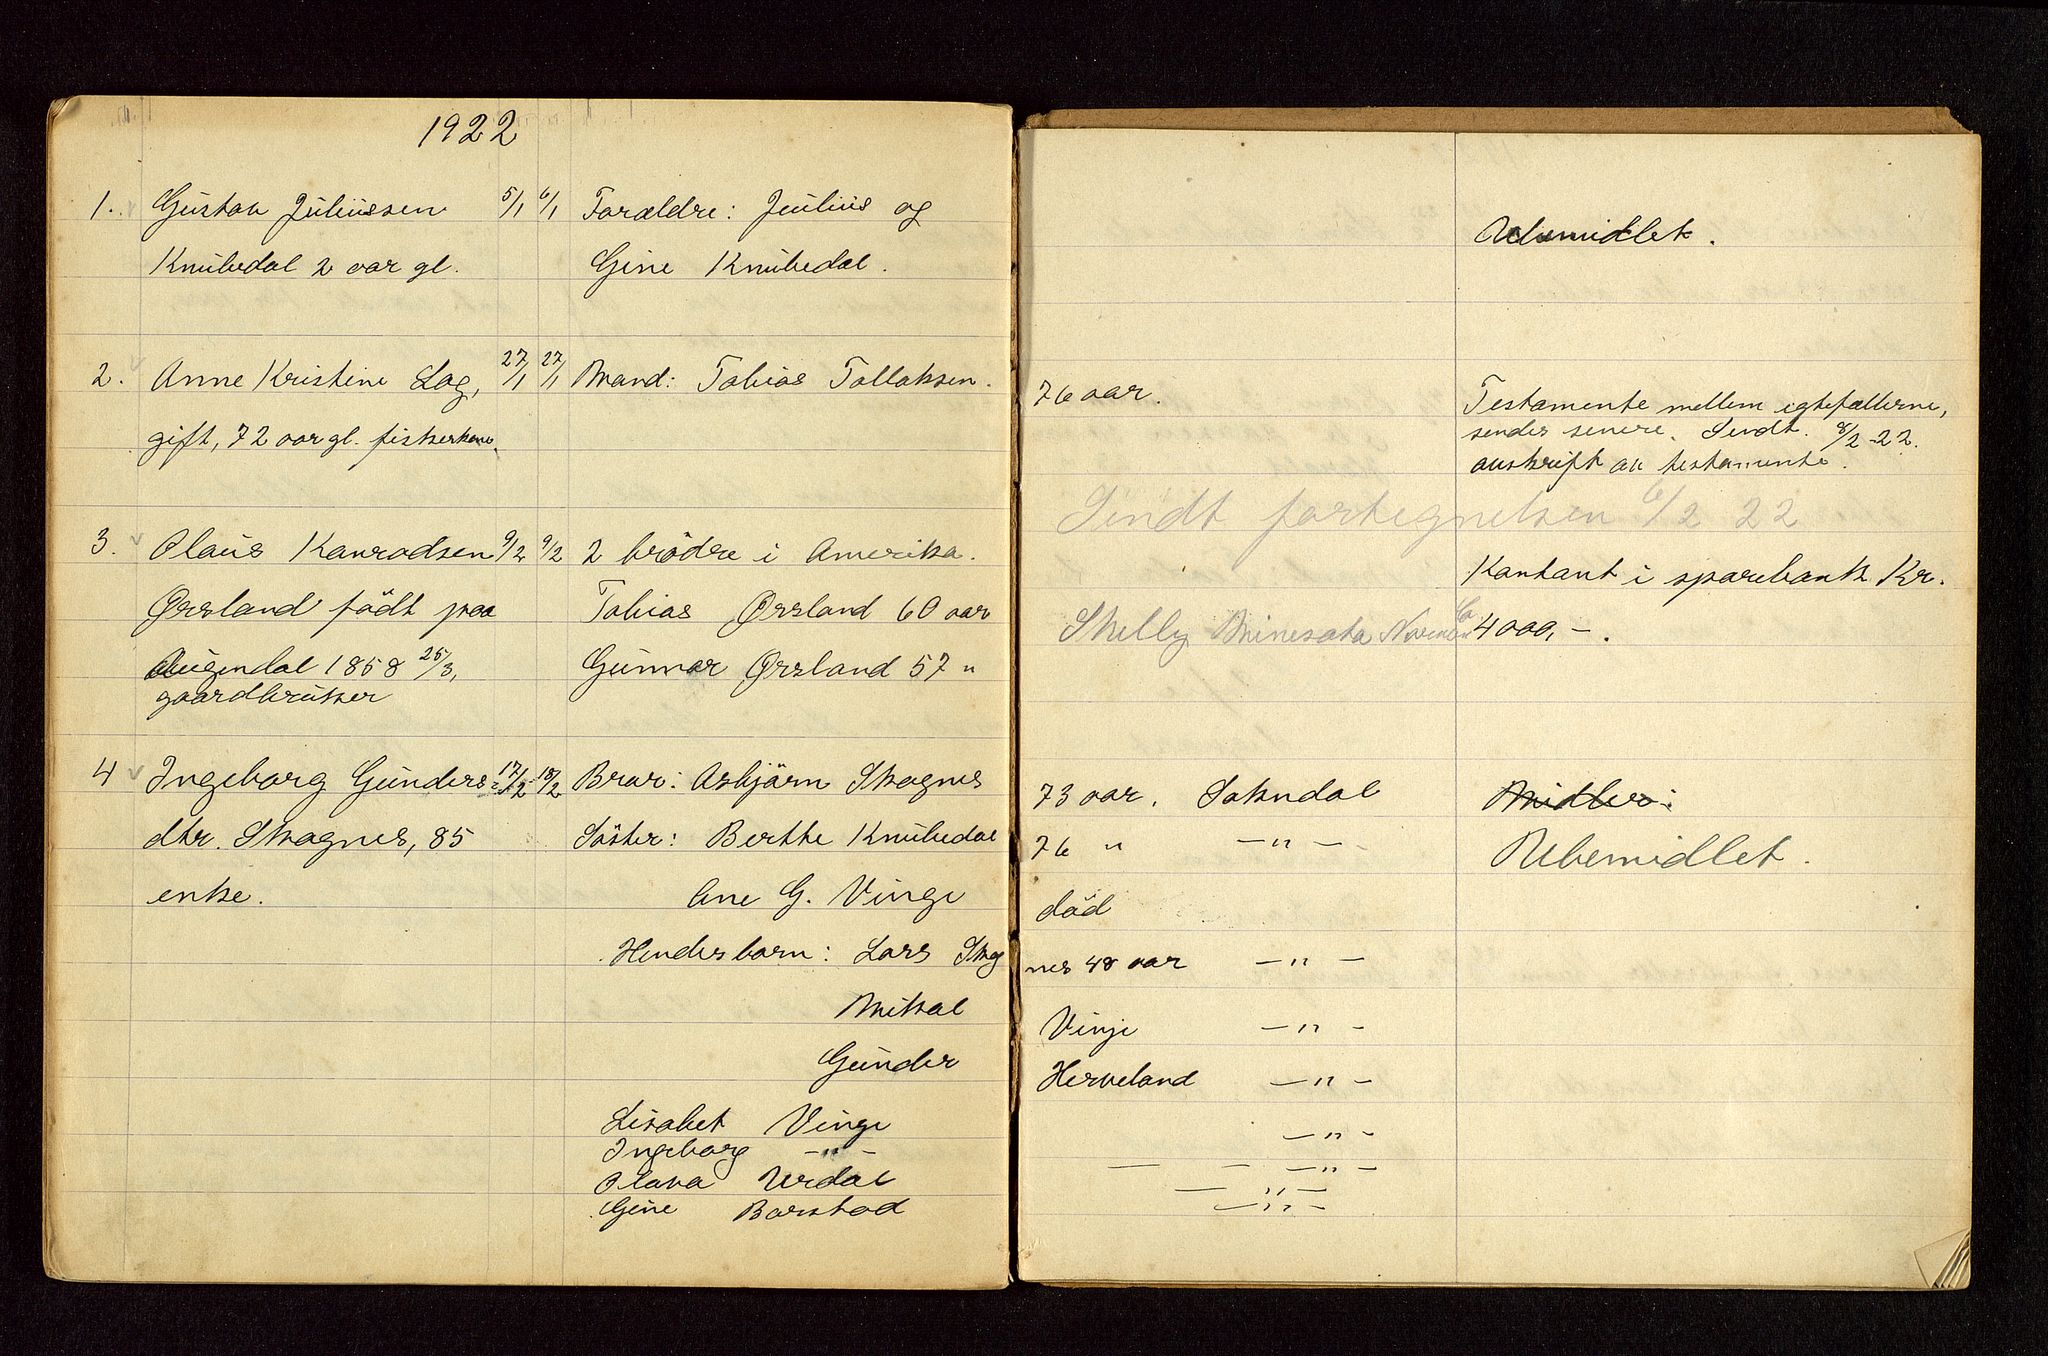 1922
1. Gustav Juliussen 5/1 6/1 Forældre: Juulius og
Knubedal 2 aar gl. Gine Knubedal.
Ubemidlet.
2. Anne Kristine Log, 27/1 27/1 Mand: Tobias Tollaksen. 76 aar.
gift, 72 aar gl. fiskerkone.
Testamente mellem egtefællerne,
sendes senere. Sendt. 8/2-22.
avskrift av testamente.
Sendt fortegnelsen 6/2 22
3. Olaus Konradsen 9/2 9/2 2 brödre i Amerika.
Ørsland födt paa Tobias Ørsland 60 aar
Augendal 1858 25/3, Gunnar Ørsland 57 "
gaardbruker
Kontant i sparebank Kr.
4000,-.
Shelly Minesota Norman Co
4 Ingeborg Gunders= 17/2 18/2 Bror: Asbjörn Skognes 73 aar. Sokndal
dtr. Skognes, 85 Söster: Berthe Knubedal 76 " -"-
enke. Ane G. Vinge död
Midler:
Ubemidlet.
Hendes barn: Lars Skog nes 48 aar -"-
Mikal Vinje -"-
Gunder Herveland -"-
Lisabet Vinge -"-
Ingeborg -"- - - -"-
Olava Urdal - -"-
Gine Barstad -"-